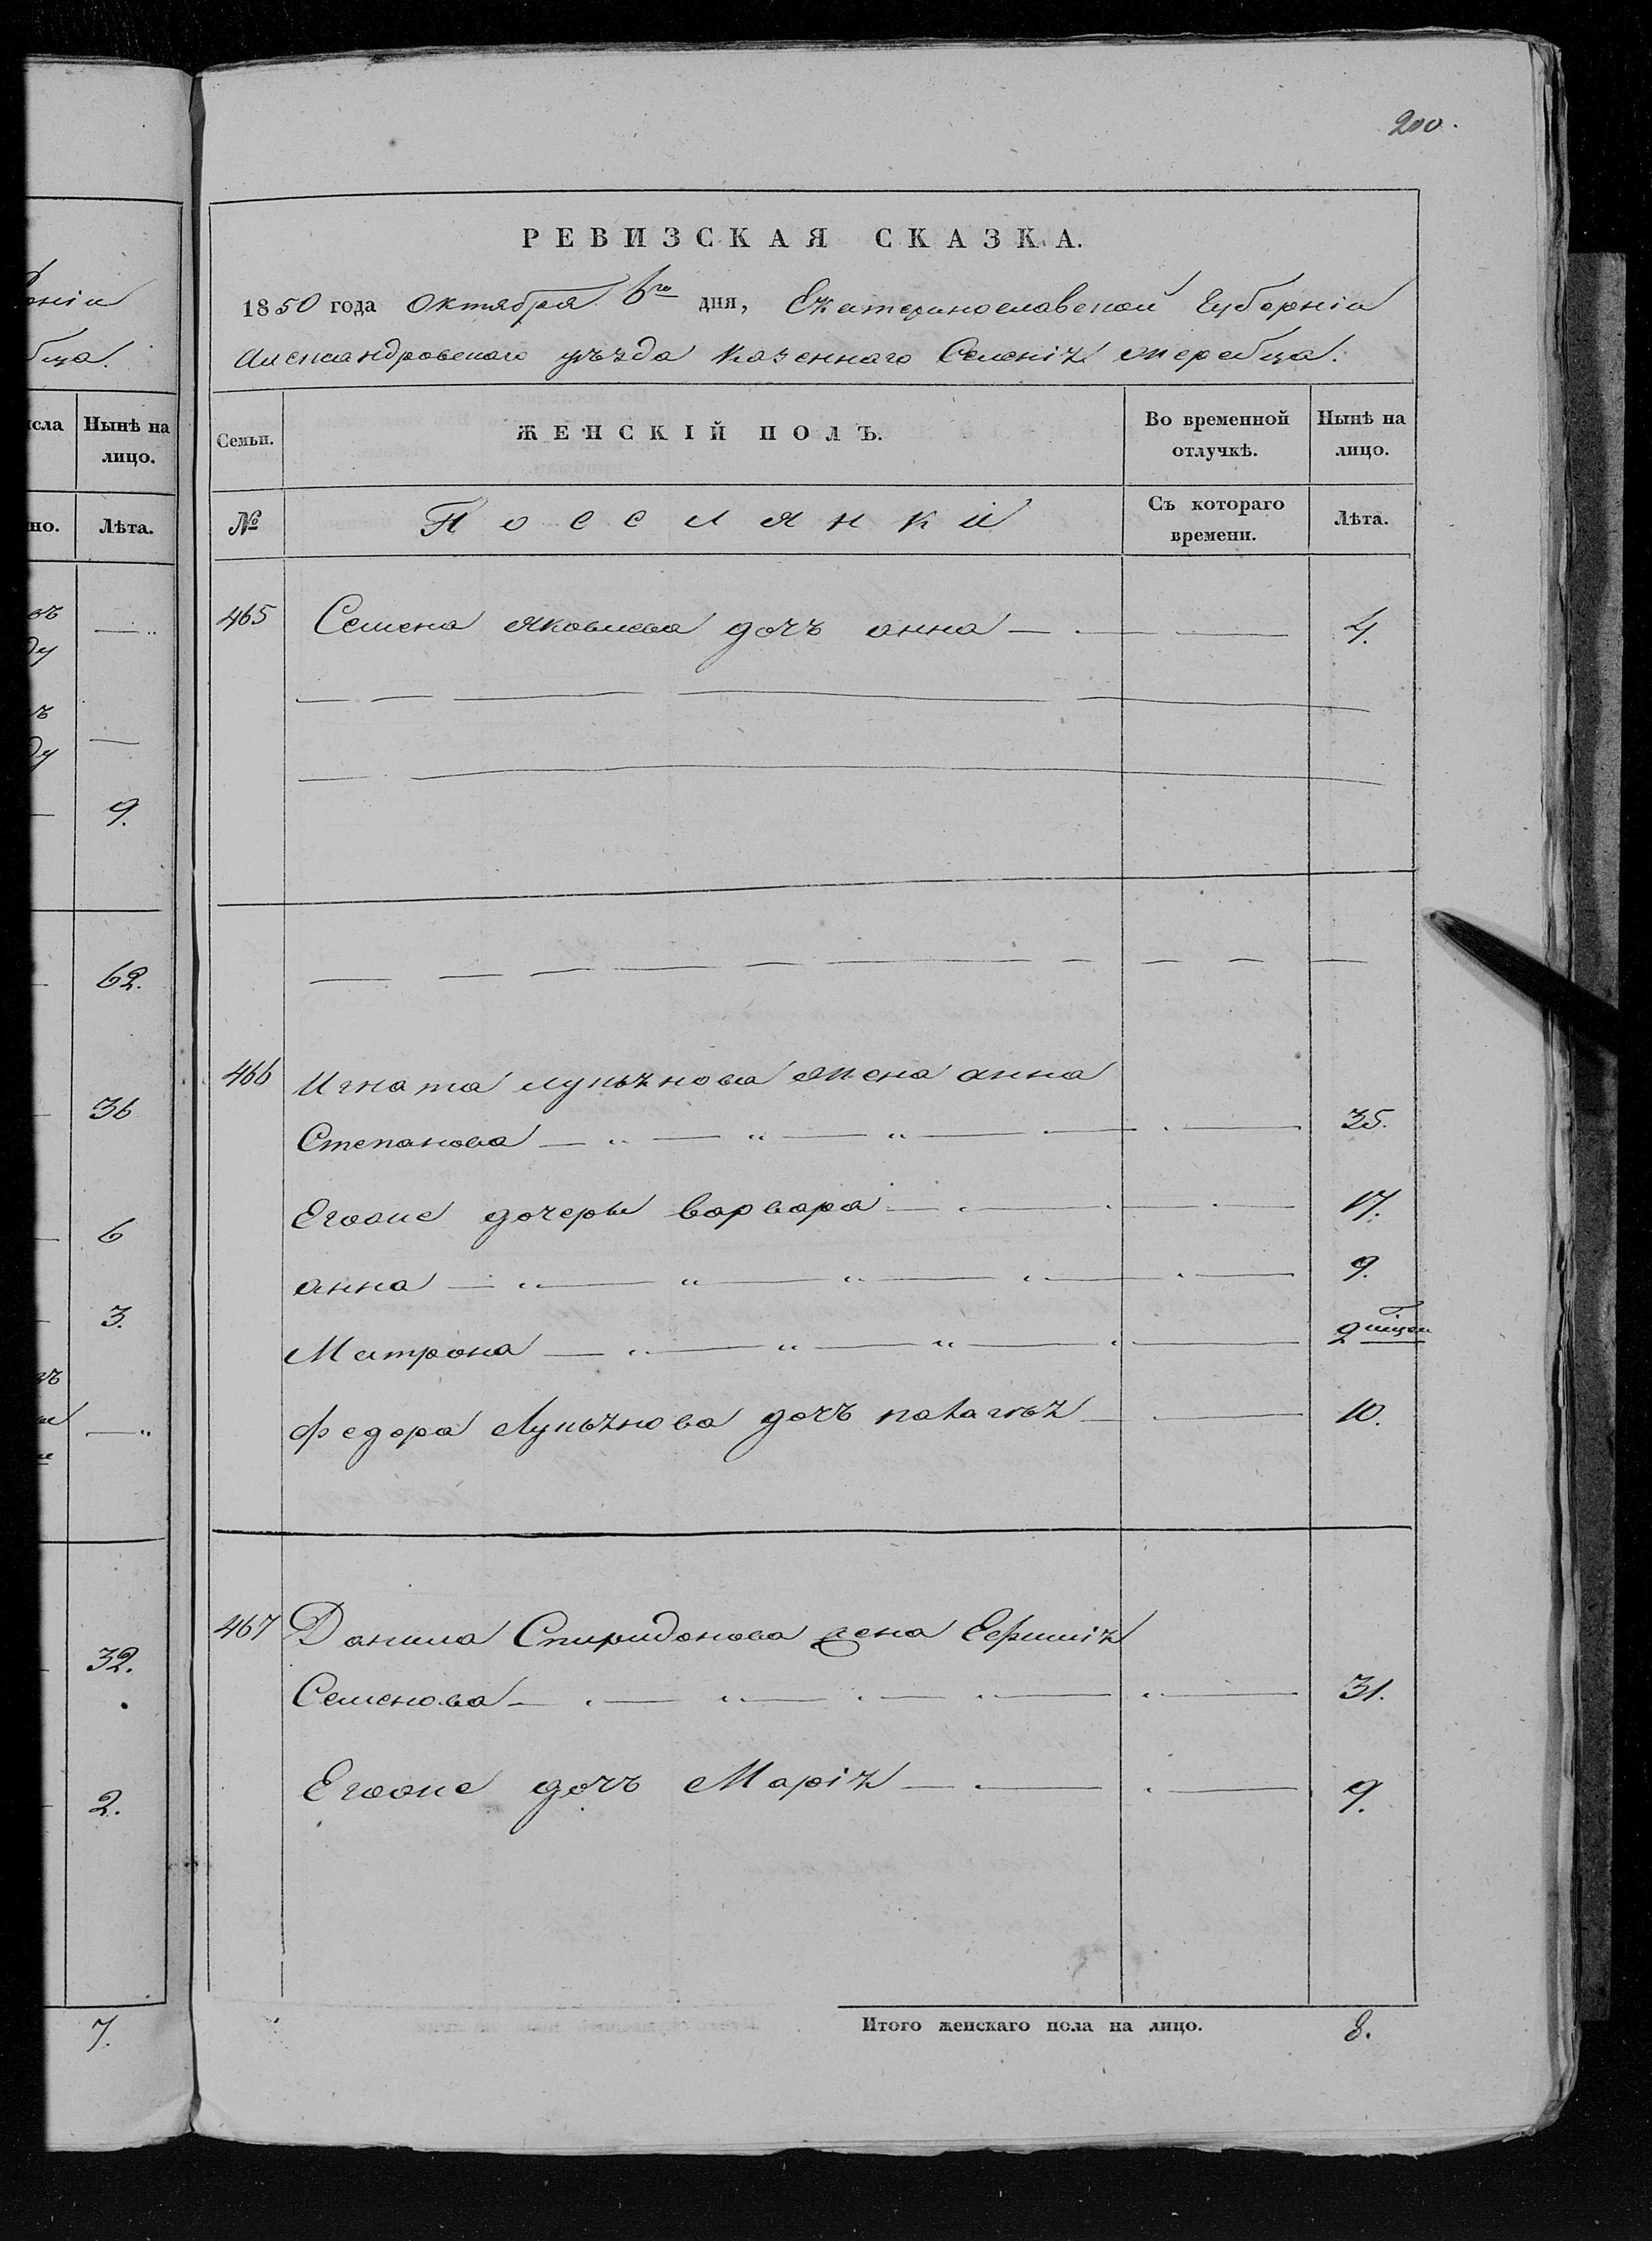 200.
РЕВИЗСКАЯ СКАЗКА.
1850 года Октября 6го дня, Екатеринославской Губерніи
Александровскаго уѣзда Казеннаго Селенія Жеребца.
Семьи.
ЖЕНСКІЙ ПОЛЪ.
Во временной отлучкѣ.
Нынѣ на лицо.
№
Поселянки
Съ котораго времени.
Лѣта.
465 Семена Яковлева дочь анна 4.
466 Игната лукьянова жена анна
Степанова 35.
Егоже дочеры варвара 17.
анна 9.
Матрона 2
Федора Лукьянова дочь 10.
467 Данила Спиридонова жена Ефимія
Семенова 31.
Егоже дочь Марія 9.
Итого женскаго пола на лицо. 8.
Нынѣ на
лицо.
но.
Лѣта.
9.
62.
36
6
3.
32.
2.
7.